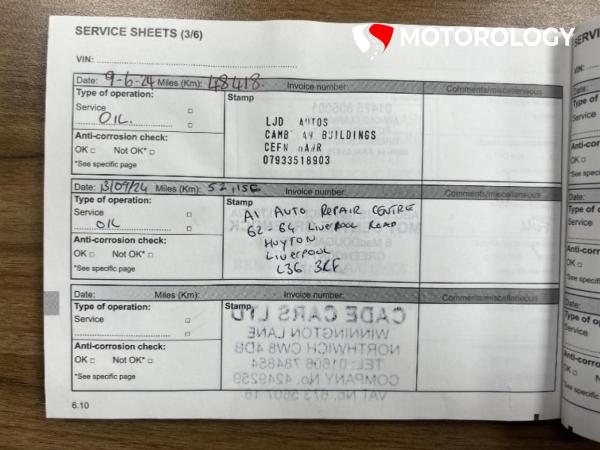 MOTOROLOGY
SERVICE SHEETS (3/6)
VIN:
Date: 9-6-24 Miles (Km): 48418. Invoice number: Comments/miscellaneous
Type of operation: Stamp
Service
OIL.
LJD AUTOS
BUILDINGS
CEFN
07933518903
Anti-corrosion check:
OK Not OK*
*See specific page
Date: 13/09/24 Miles (Km): Invoice number: Comments/miscellaneous
Type of operation: Stamp
Service
OIL
A1 AUTO REPAIR CENTRE
62-64 LIVERPOOL ROAD
HUYTON
LIVERPOOL
L36
Anti-corrosion check:
OK Not OK*
*See specific page
Date: Miles (Km): Invoice number: Comments/miscellaneous
Type of operation: Stamp
Service
CADE CARS LTD
WINNINGTON LANE
NORTHWICH CW8 4DB
TEL: 01606 784854
COMPANY No. 4249259
VAT No. 673 5607 16
Anti-corrosion check:
OK Not OK*
*See specific page
6.10